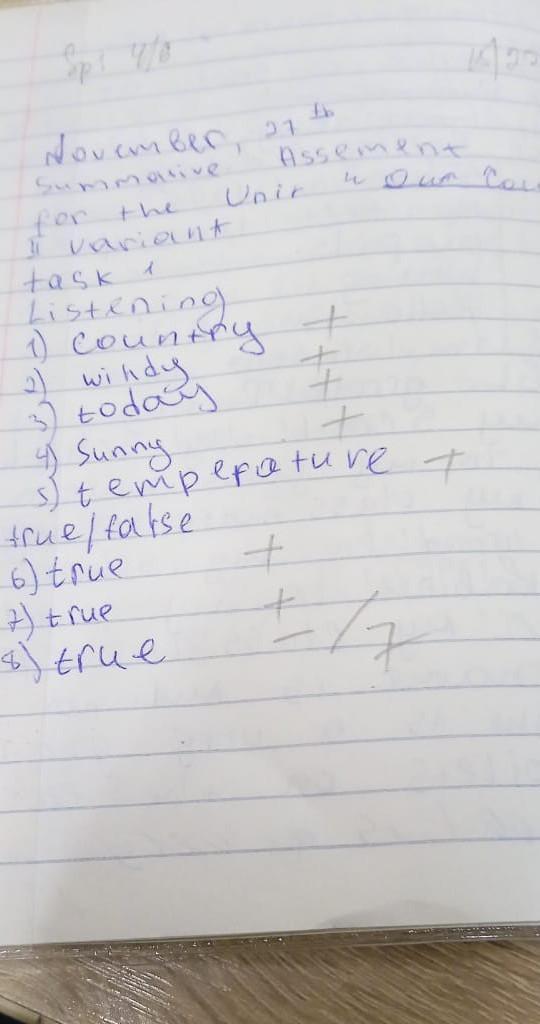 Sp: 4/8
15/22
November, 27th
Summative Assement
for the Unit "Our Cou
II variant
task 1
Listening
1) country +
2) windy +
3) today +
4) Sunny +
5) temperature +
true/false
6) true +
7) true +
8) true - /7